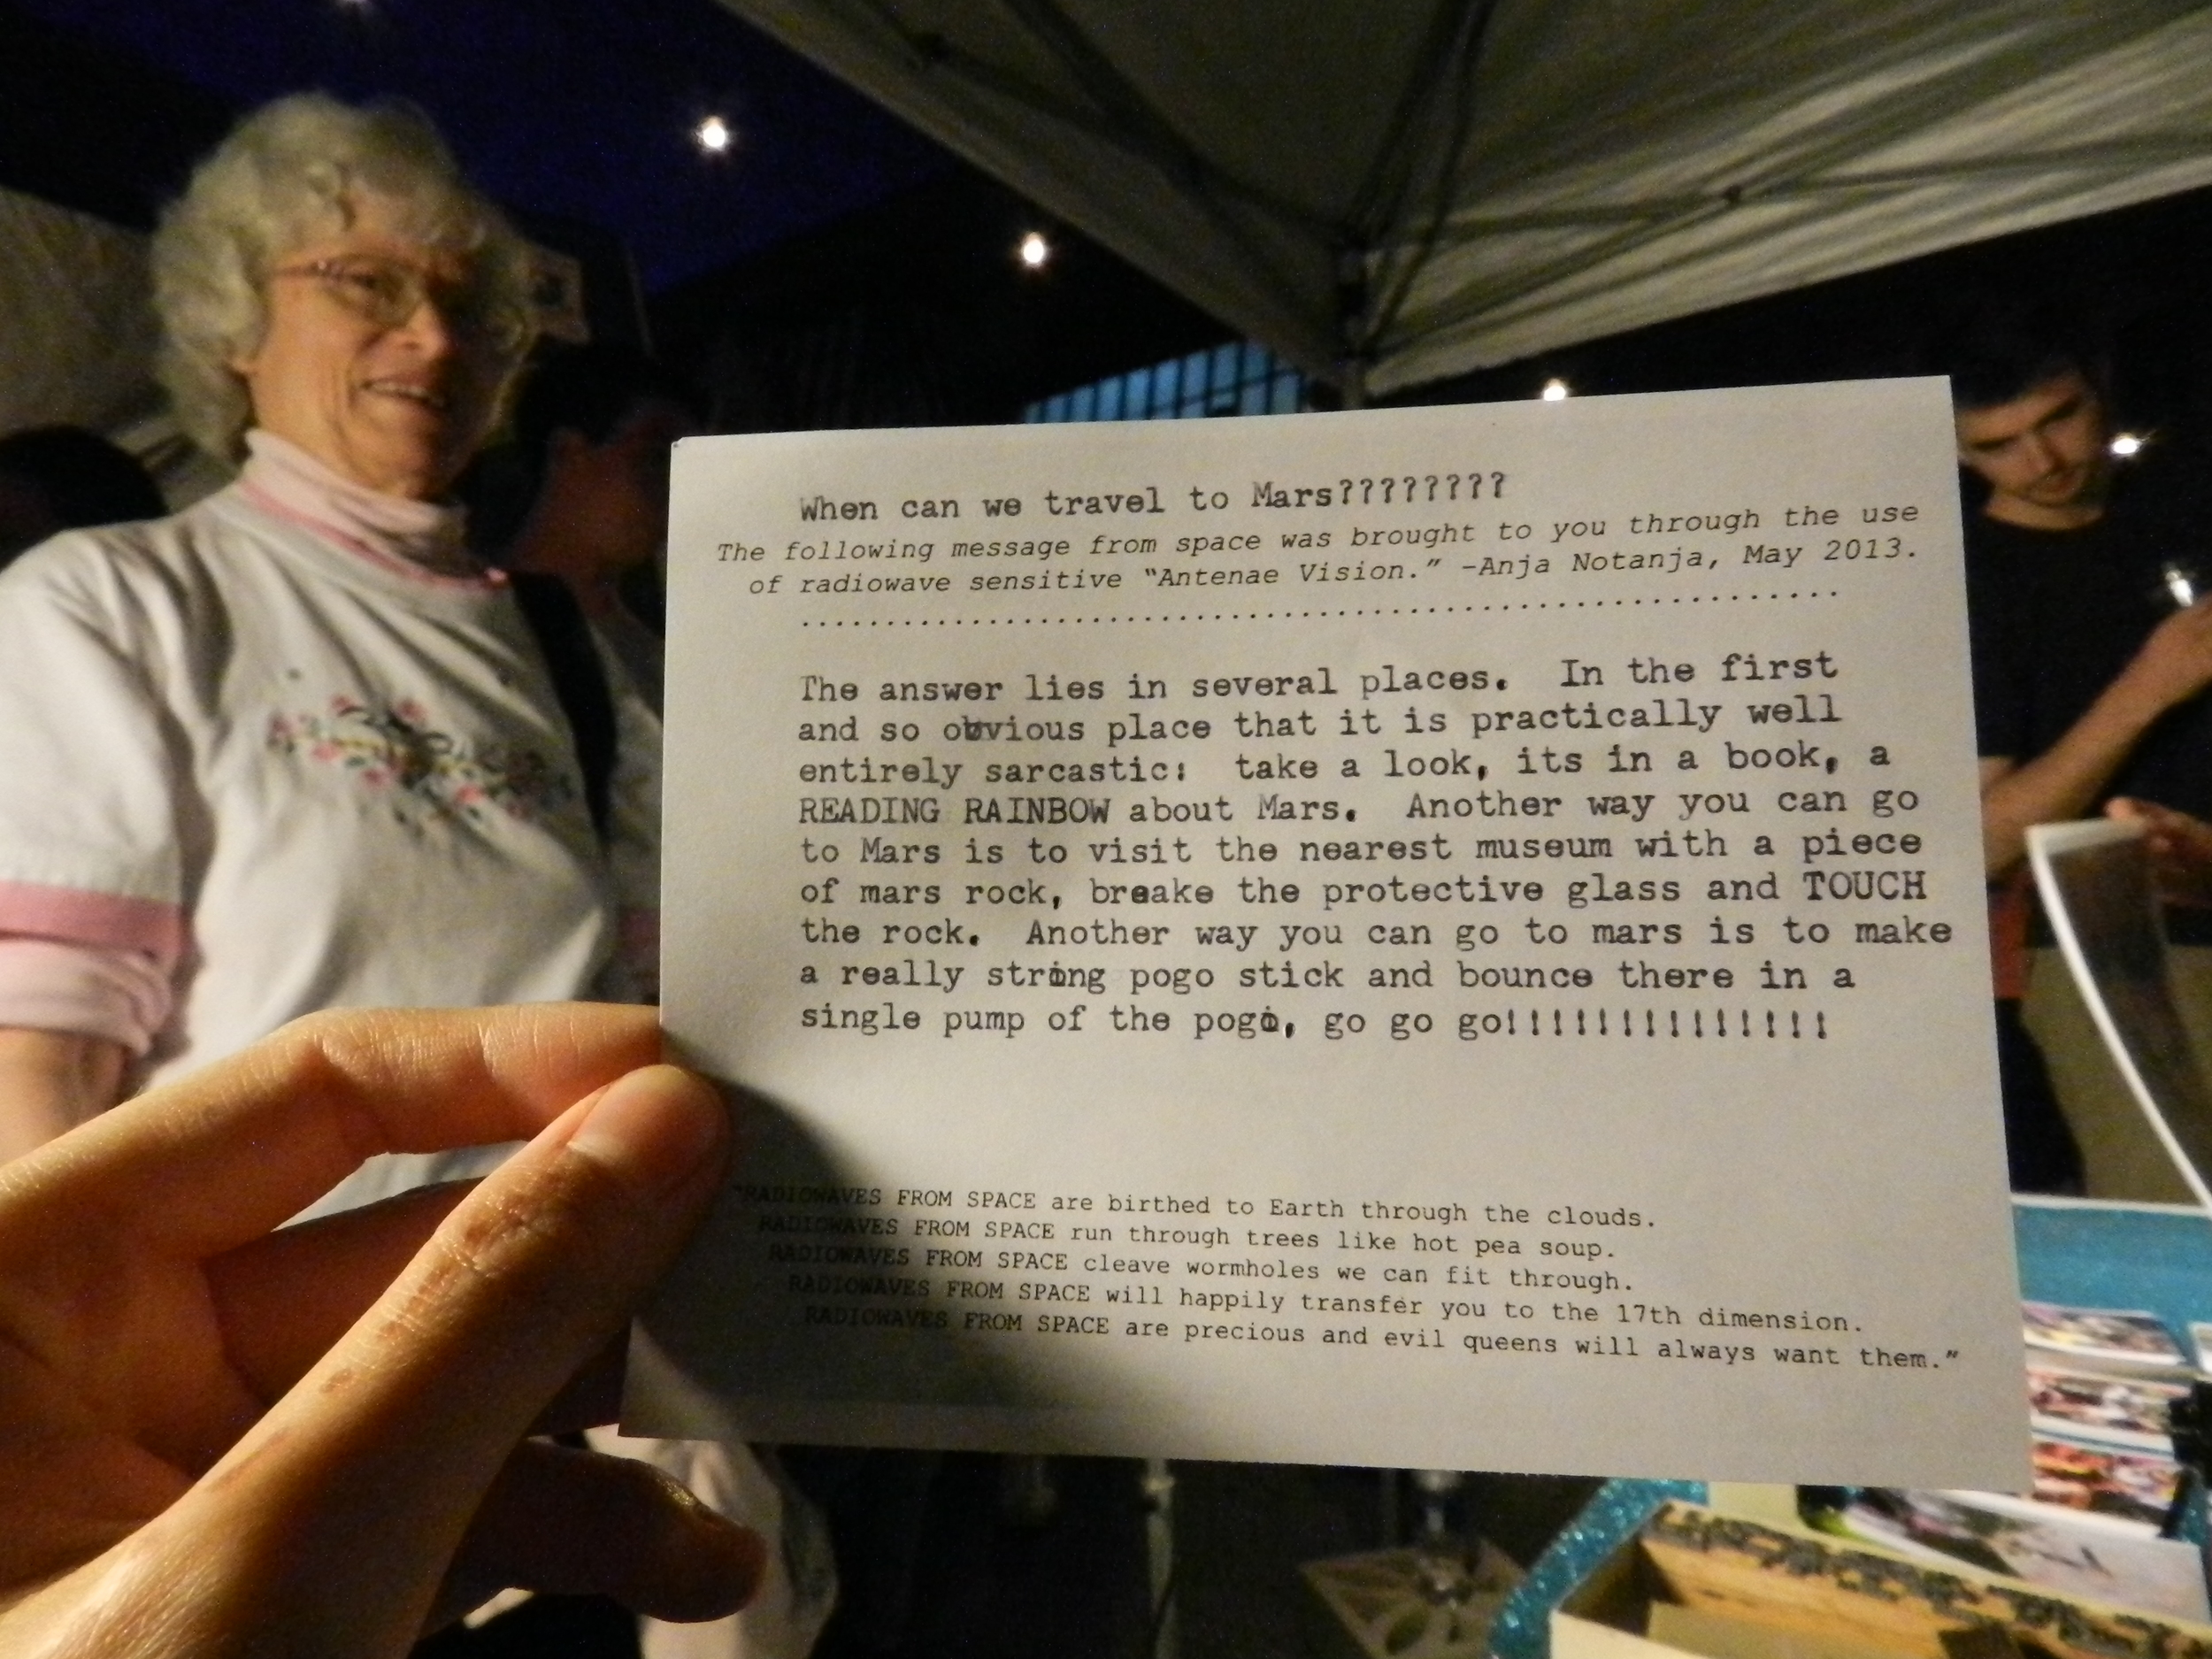 When can we travel to Mars????????
The following message from space was brought to you through the use
of radiowave sensitive “Antenae Vision.” –Anja Notanja, May 2013.
The answer lies in several places. In the first
and so obvious place that it is practically well
entirely sarcastic: take a look, its in a book, a
READING RAINBOW about Mars. Another way you can go
to Mars is to visit the nearest museum with a piece
of mars rock, breake the protective glass and TOUCH
the rock. Another way you can go to mars is to make
a really strong pogo stick and bounce there in a
single pump of the pogo, go go go!!!!!!!!!!!!!!!
“RADIOWAVES FROM SPACE are birthed to Earth through the clouds.
RADIOWAVES FROM SPACE run through trees like hot pea soup.
RADIOWAVES FROM SPACE cleave wormholes we can fit through.
RADIOWAVES FROM SPACE will happily transfer you to the 17th dimension.
RADIOWAVES FROM SPACE are precious and evil queens will always want them.”